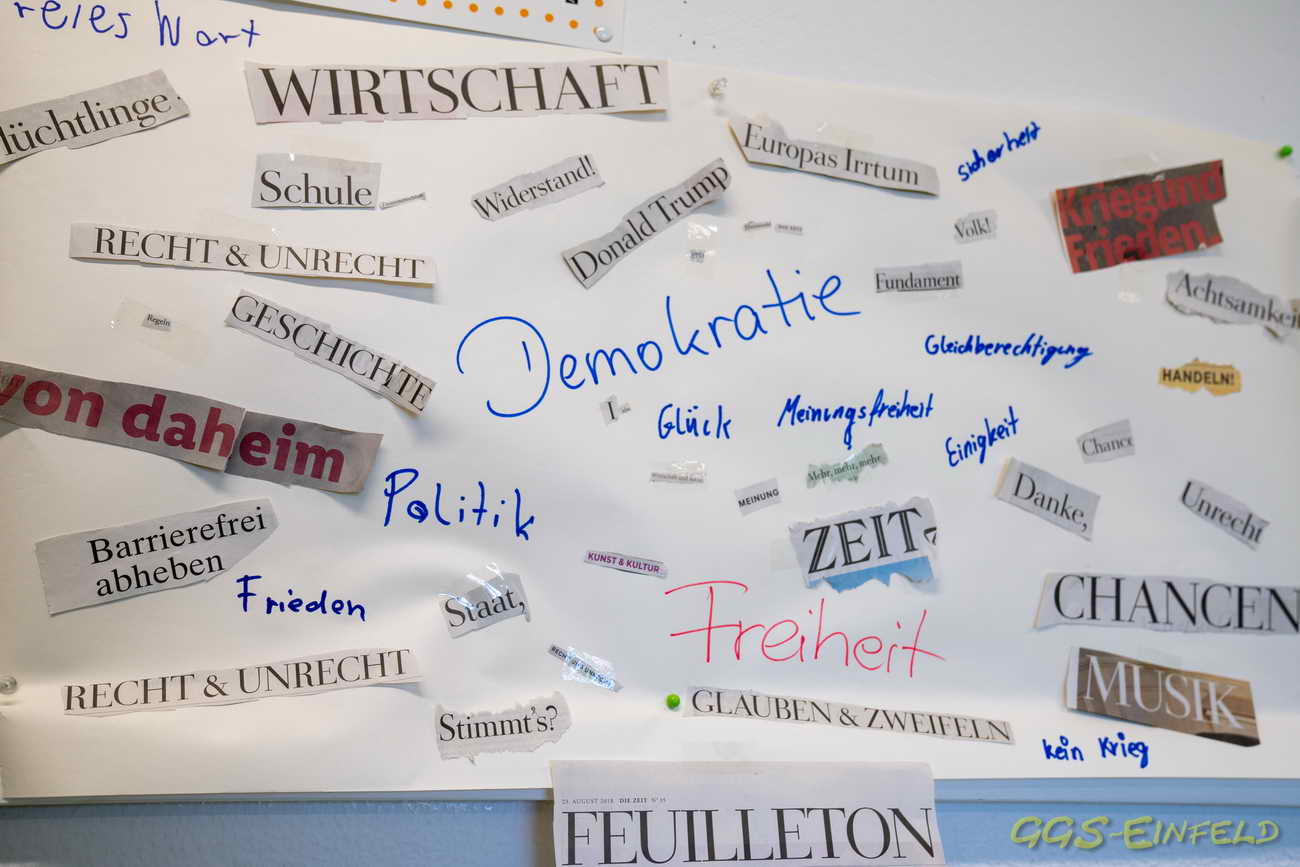 reies Wort
WIRTSCHAFT
lüchtlinge
Europas Irrtum
Sicherheit
Schule
Widerstand!
Donald Trump
Krieg und
Frieden.
Volk!
RECHT & UNRECHT
Fundament
Achtsamkei
Regeln
GESCHICHTE
Demokratie
Gleichberechtigung
HANDELN!
von daheim
I
Glück
Meinungsfreiheit
Einigkeit
Chance
Mehr, mehr, mehr
Politik
MEINUNG
Danke,
Unrecht
Barrierefrei
abheben
ZEIT
KUNST & KULTUR
Frieden
Staat,
CHANCEN
Freiheit
RECHT & UNRECHT
RECHT UND UNRECHT
MUSIK
Stimmt's?
GLAUBEN & ZWEIFELN
kein Krieg
23. AUGUST 2018 DIE ZEIT N° 35
FEUILLETON
GGS-EINFELD